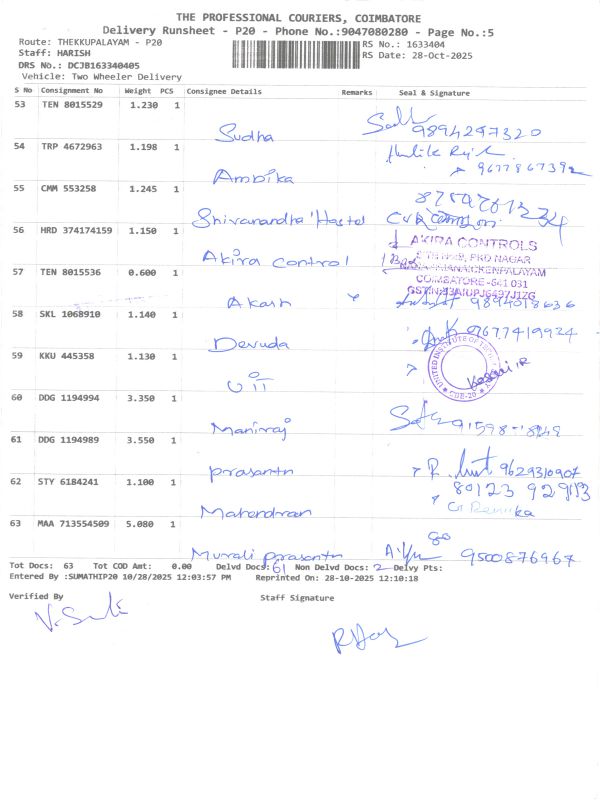 THE PROFESSIONAL COURIERS, COIMBATORE
Delivery Runsheet - P20 - Phone No.:9047080280 - Page No.:5
Route: THEKKUPALAYAM - P20 RS No.: 1633404
Staff: HARISH RS Date: 28-Oct-2025
DRS No.: DCJB163340405
Vehicle: Two Wheeler Delivery
S No Consignment No Weight PCS Consignee Details Remarks Seal & Signature
53 TEN 8015529 1.230 1
Sudha 9894297320
54 TRP 4672963 1.198 1
Ambika 9677867392
55 CMM 553258 1.245 1
Shivanandha Hostel
56 HRD 374174159 1.150 1
AKIRA CONTROLS
Akira Control
COIMBATORE-641 031
57 TEN 8015536 0.600 1
Akash 9894018636
58 SKL 1068910 1.140 1
Devuda 9677419924
59 KKU 445358 1.130 1
UNITED INSTITUTE OF TECH
CBE-20
UIT
60 DDG 1194994 3.350 1
Maniraj
61 DDG 1194989 3.550 1
Prasanth 9629310907
62 STY 6184241 1.100 1
80123 92993
Mahendran Renuka
63 MAA 713554509 5.080 1
Murali prasanth 9500876967
Tot Docs: 63 Tot COD Amt: 0.00 Delvd Docs: 61 Non Delvd Docs: 2 Delvy Pts:
Entered By :SUMATHIP20 10/28/2025 12:03:57 PM Reprinted On: 28-10-2025 12:10:18
Verified By Staff Signature